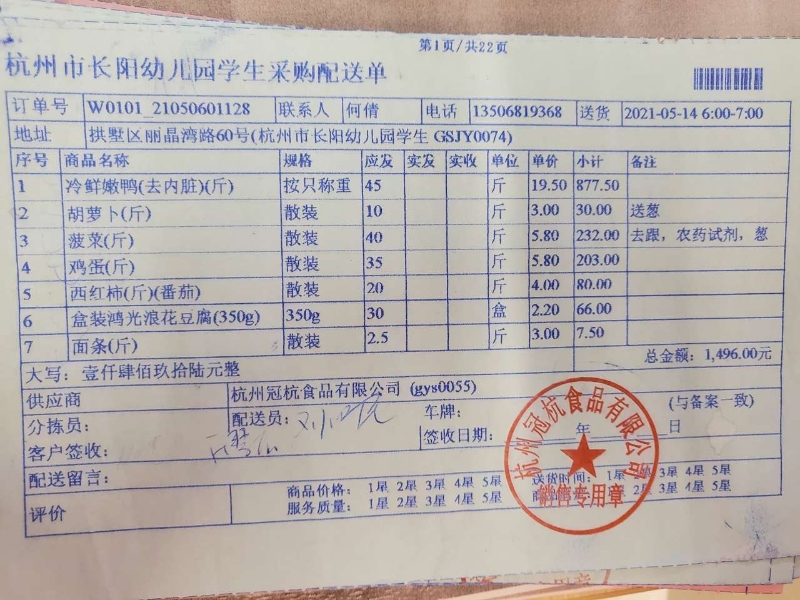 第1页/共22页
杭州市长阳幼儿园学生采购配送单
订单号 W0101_21050601128 联系人 何倩 电话 13506819368 送货 2021-05-14 6:00-7:00
地址 拱墅区丽晶湾路60号(杭州市长阳幼儿园学生 GSJY0074)
序号 商品名称 规格 应发 实发 实收 单位 单价 小计 备注
1 冷鲜嫩鸭(去内脏)(斤) 按只称重 45 斤 19.50 877.50
2 胡萝卜(斤) 散装 10 斤 3.00 30.00 送葱
3 菠菜(斤) 散装 40 斤 5.80 232.00 去跟，农药试剂，葱
4 鸡蛋(斤) 散装 35 斤 5.80 203.00
5 西红柿(斤)(番茄) 散装 20 斤 4.00 80.00
6 盒装鸿光浪花豆腐(350g) 350g 30 盒 2.20 66.00
7 面条(斤) 散装 2.5 斤 3.00 7.50
大写：壹仟肆佰玖拾陆元整 总金额：1,496.00元
供应商 杭州冠杭食品有限公司 (gys0055)
分拣员： 配送员： 车牌： (与备案一致)
客户签收： 签收日期： 年 日
配送留言：
评价 商品价格： 1星 2星 3星 4星 5星 送货时间： 1星 3星 4星 5星
服务质量： 1星 2星 3星 4星 5星 2星 3星 4星 5星
杭州冠杭食品有限公司
销售专用章